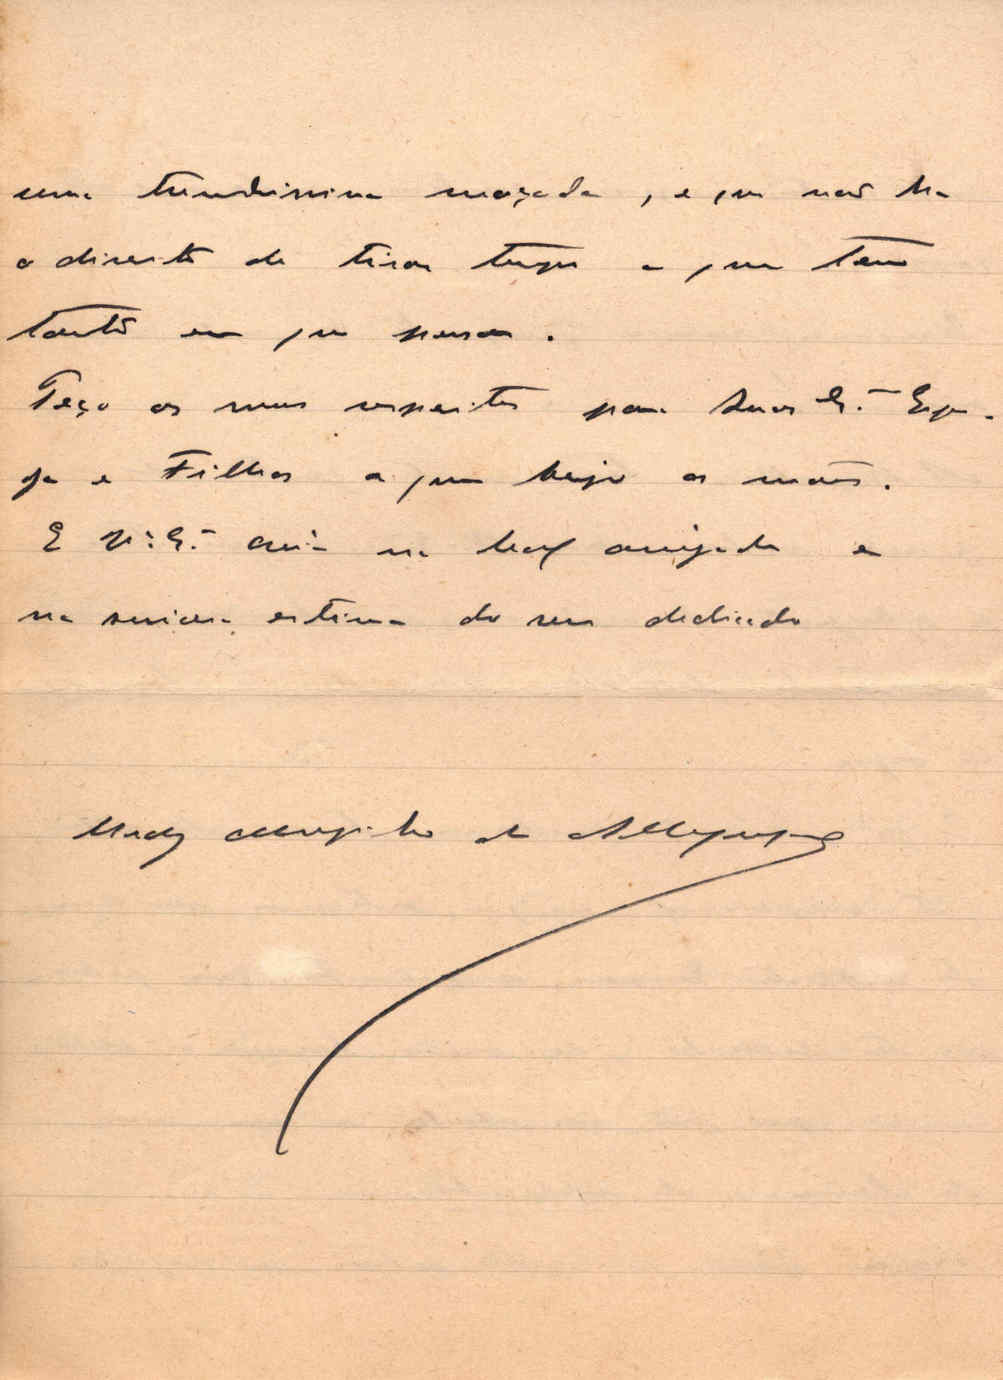 uma tremendissima maçada, e que não ha
o direito de tirar tempo a quem tem
tanto em que pensar.
Peço os meus respeitos para Suas Ex.as Espo-
sa e Filhas a quem beijo as mãos.
E V.ª Ex.ª creia na leal amizade e
na sincera estima do seu dedicado
de Albuquerque